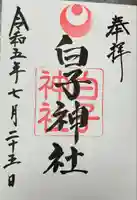 奉拝
白子神社
白子神社
令和五年七月二十五日